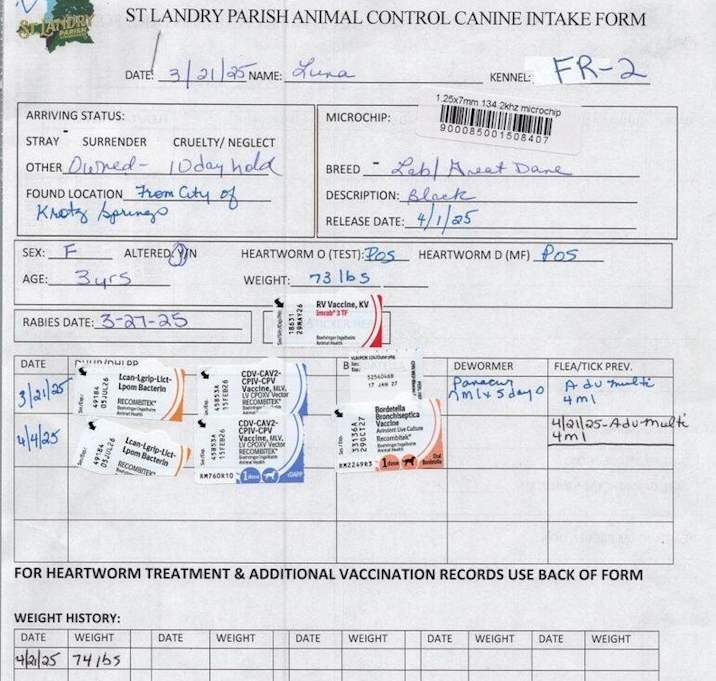 ST LANDRY
PARISH
ST LANDRY PARISH ANIMAL CONTROL CANINE INTAKE FORM
DATE: 3/21/25 NAME: Luna KENNEL: FR-2
ARRIVING STATUS:
STRAY SURRENDER CRUELTY/ NEGLECT
OTHER Owned- 10 day hold
FOUND LOCATION From City of
Krotz Springs
MICROCHIP:
1.25x7mm 134.2khz microchip
900085001508407
BREED Lab/ Great Dane
DESCRIPTION: Black
RELEASE DATE: 4/1/25
SEX: F ALTERED: Y/N HEARTWORM O (TEST): POS HEARTWORM D (MF) POS
AGE: 3yrs WEIGHT: 73 lbs
RABIES DATE: 3-27-25
18631
29MAY26
RV Vaccine, KV
Imrab® 3 TF
Boehringer Ingelheim
Animal Health
DATE DEWORMER FLEA/TICK PREV.
3/21/25
49184
05JUL26
Lcan-Lgrip-Lict-
Lpom Bacterin
RECOMBITEK®
Boehringer Ingelheim
Animal Health
45853A
15FEB26
CDV-CAV2-
CPIV-CPV
Vaccine, MLV,
LV CPOXV Vector
RECOMBITEK®
Boehringer Ingelheim
Animal Health
5254046B
17 JAN 27
Panacur
7ml x 5 days
Advmulti
4ml
4/21/25-Advmulti
4ml
4/4/25
49184
05JUL26
Lcan-Lgrip-Lict-
Lpom Bacterin
RECOMBITEK
45853A
15FEB26
CDV-CAV2-
CPIV-CPV
Vaccine, MLV,
LV CPOXV Vector
RECOMBITEK®
Boehringer Ingelheim
Animal Health
RM760R10 1 dose cDAPP
33356A
29OCT27
Bordetella
Bronchiseptica
Vaccine
Avirulent Live Culture
Recombitek®
Boehringer Ingelheim
Animal Health
RM2249R3 1 dose Oral
Bordetella
FOR HEARTWORM TREATMENT & ADDITIONAL VACCINATION RECORDS USE BACK OF FORM
WEIGHT HISTORY:
DATE WEIGHT DATE WEIGHT DATE WEIGHT DATE WEIGHT DATE WEIGHT
4/21/25 74 lbs